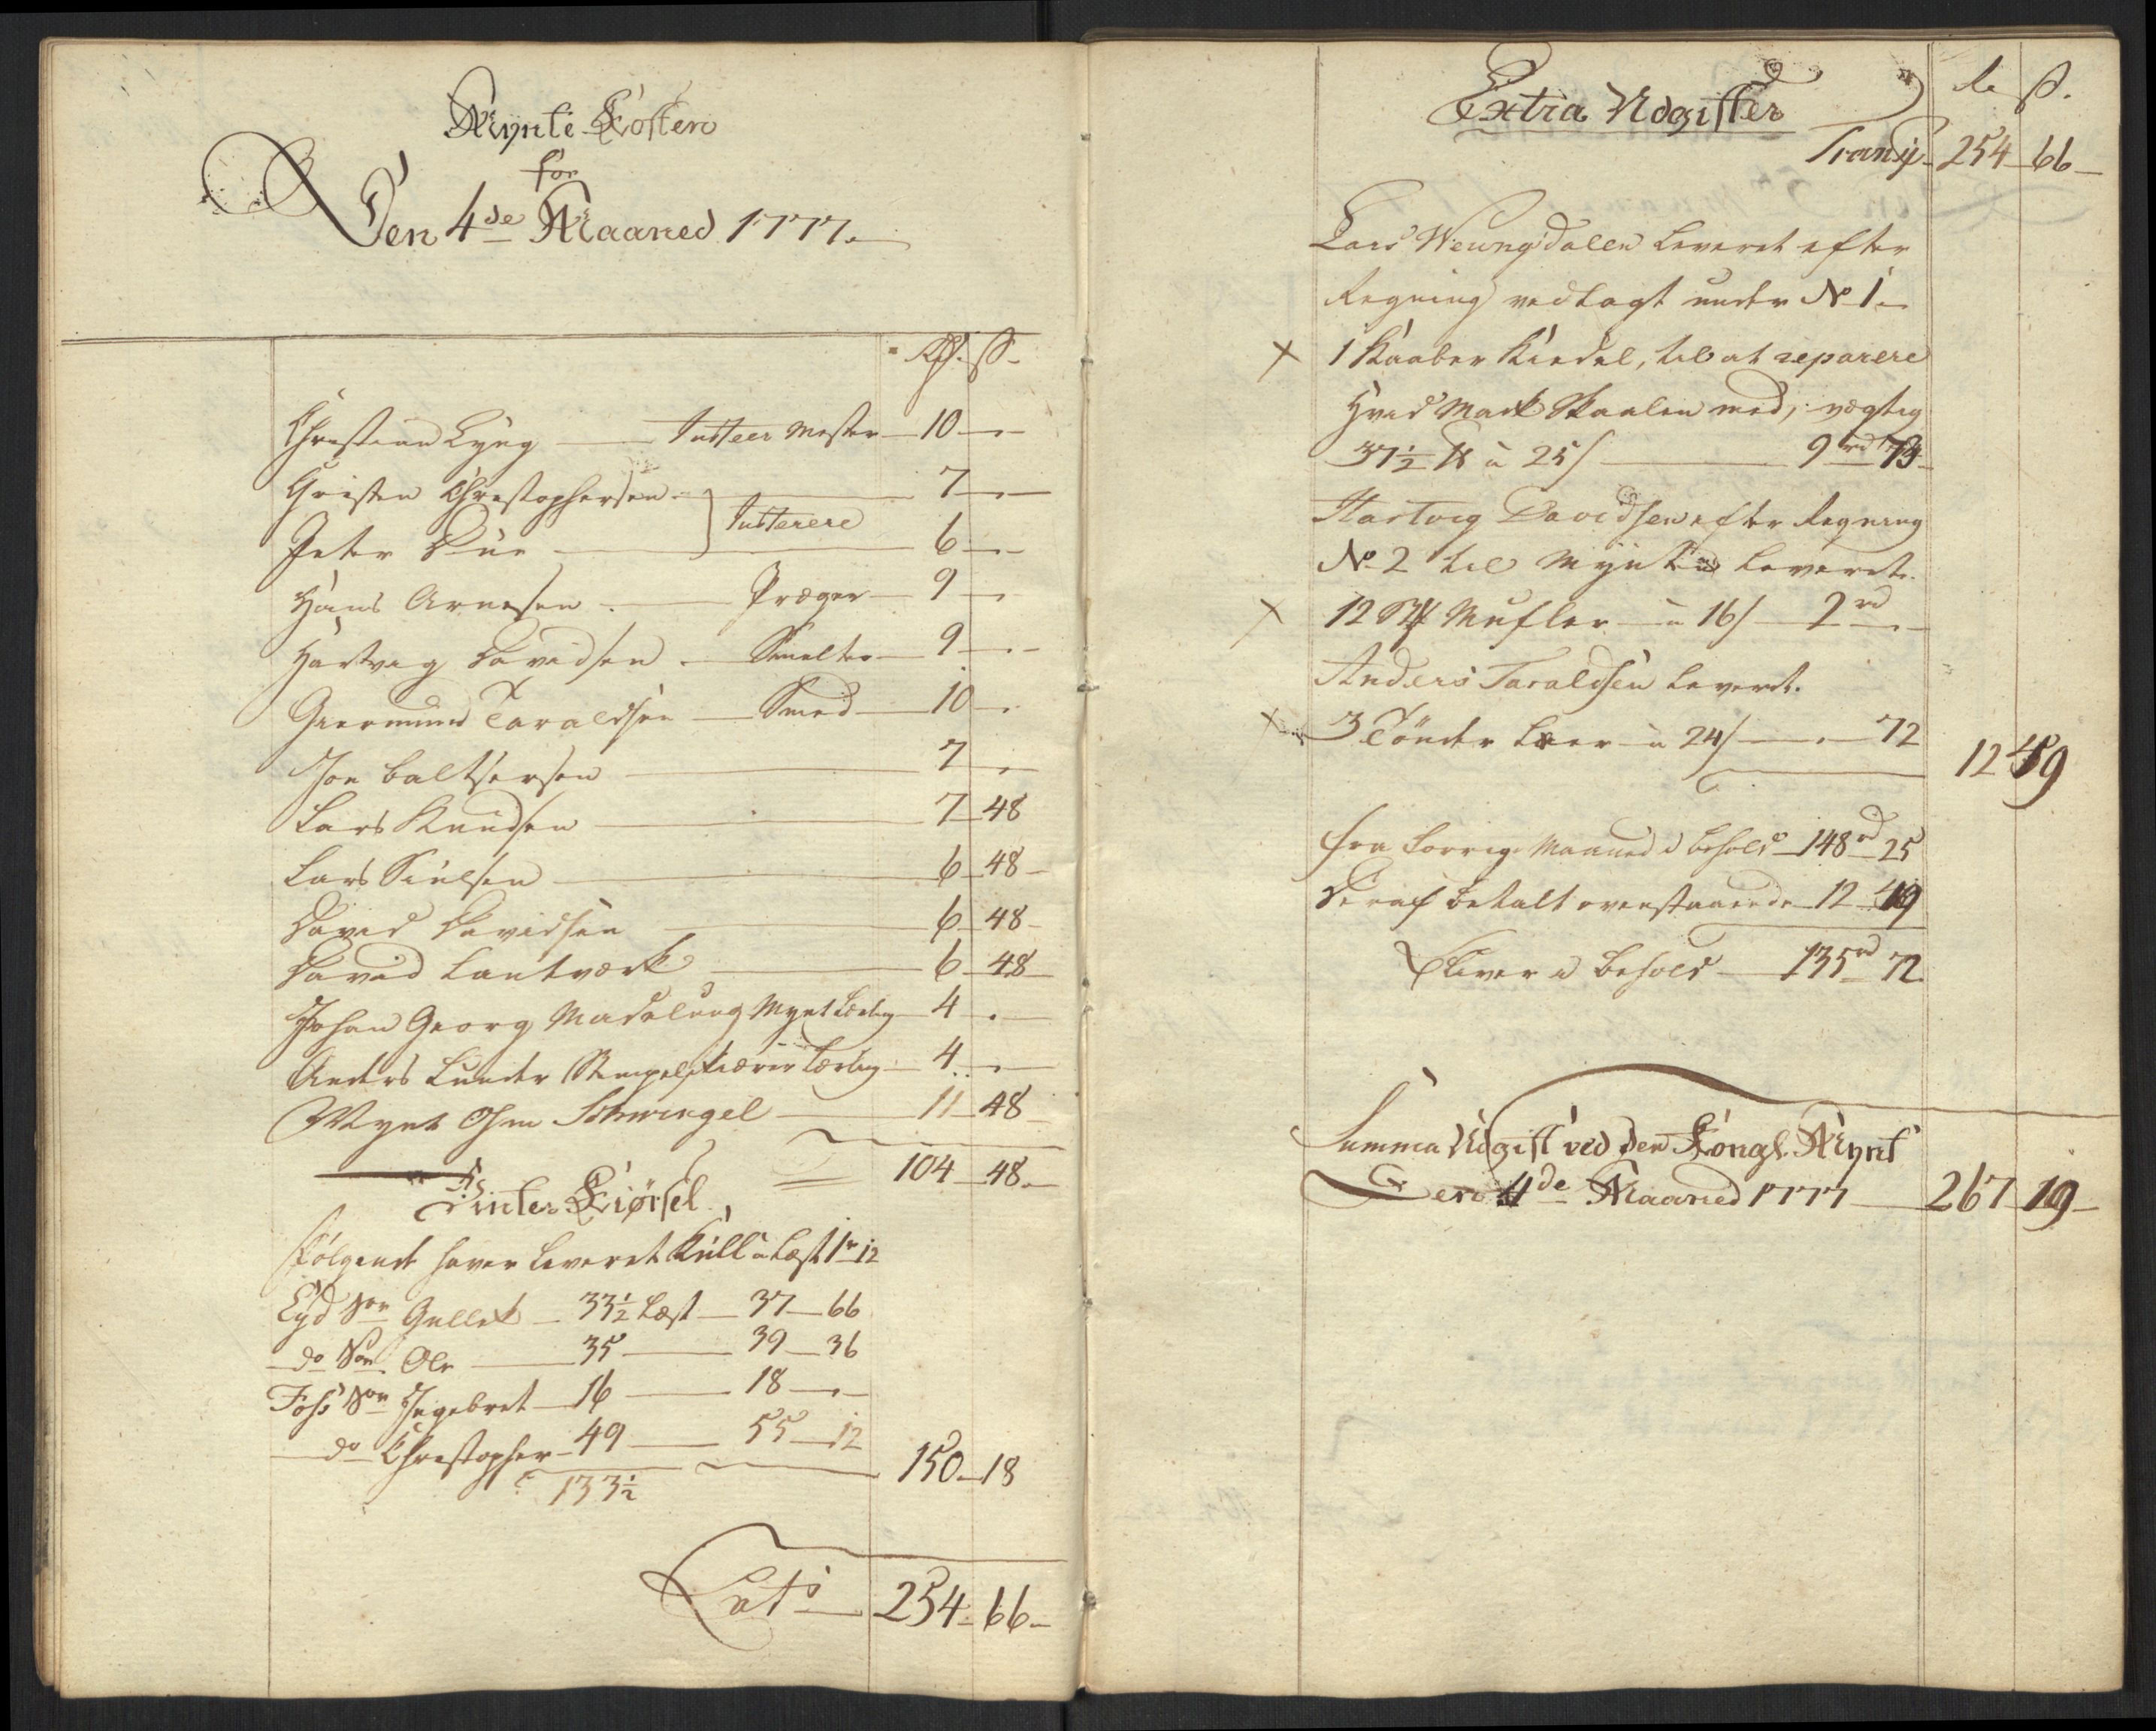 Mynte Kosten
for
Den 4de Maaned 1777.
Rdl. ß.
Christian Lÿng — Justeer Mester — 10 —
Christen Christophersen — 7 —
Justerere
Peter Due — 6 —
Hans Arnesen — Præger — 9 —
Hartvig Davidsen — Smelter — 9 —
Giermund Taraldsen — Smed — 10 —
Jon Baltsersen — 7 —
Lars Knudsen — 7 — 48
Lars Nielsen — 6 — 48
David Davidsen — 6 — 48
David Lantværk — 6 — 48
Johan Georg Madelung Mynt Lærling — 4 —
Anders Lunder Stempelskiærer Lærling — 4 —
Mynt Ohm Schwingel — 11 — 48
104 — 48
Vinter Kiørsel
Følgende haver Leveret Kull a Læst 1 r 12
Eyd Søn Gullik — 33½ Læst — 37 — 66
do Søn Ole — 35 — 39 — 36
Fohs Søn Ingebret — 16 — 18 —
do Christopher — 49 — 55 — 12
150 — 18
133½
Lat's — 254 — 66
Extra Udgifter
rd ß.
Transp. 254 — 66
Lars Weungdalen Leveret efter
Regning vedlagt under No 1.
× 1 Kaaber Kiedel, til at reparere
Hvid Mark Skaalen med, vægtig
37½ ℔ a 25 ß — 9 rd 73
Hartvig Davidsen efter Regning
No 2 til Mynten Leveret.
× 12 Stk Mufler — a 16 ß — 2 rd —
Anders Taraldsen Leveret.
× 3 Tønder Leer — a 24 ß — 72
12 49
fra forrige Maaned i behold — 148 rd 25
Deraf betalt ovenstaaende — 12 49
Bliver i behold — 135 rd 72
Summa Udgift ved den Kongl. Mynt
Den 4de Maaned 1777 — 267 19